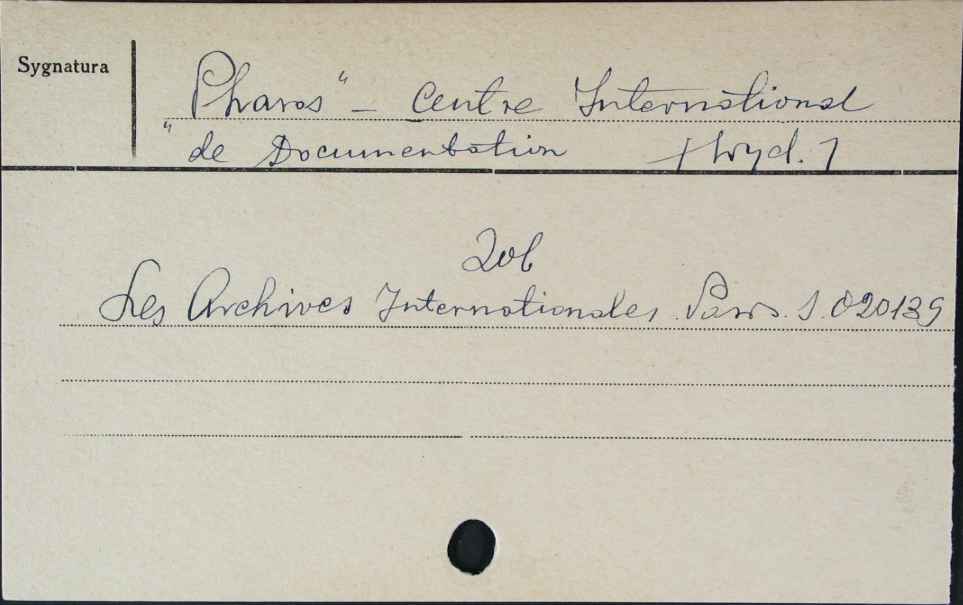 Sygnatura
Pharos" – Centre International
"de Documentation /wyd./
Zob
Les Archives Internationales. Paris. S. 020139